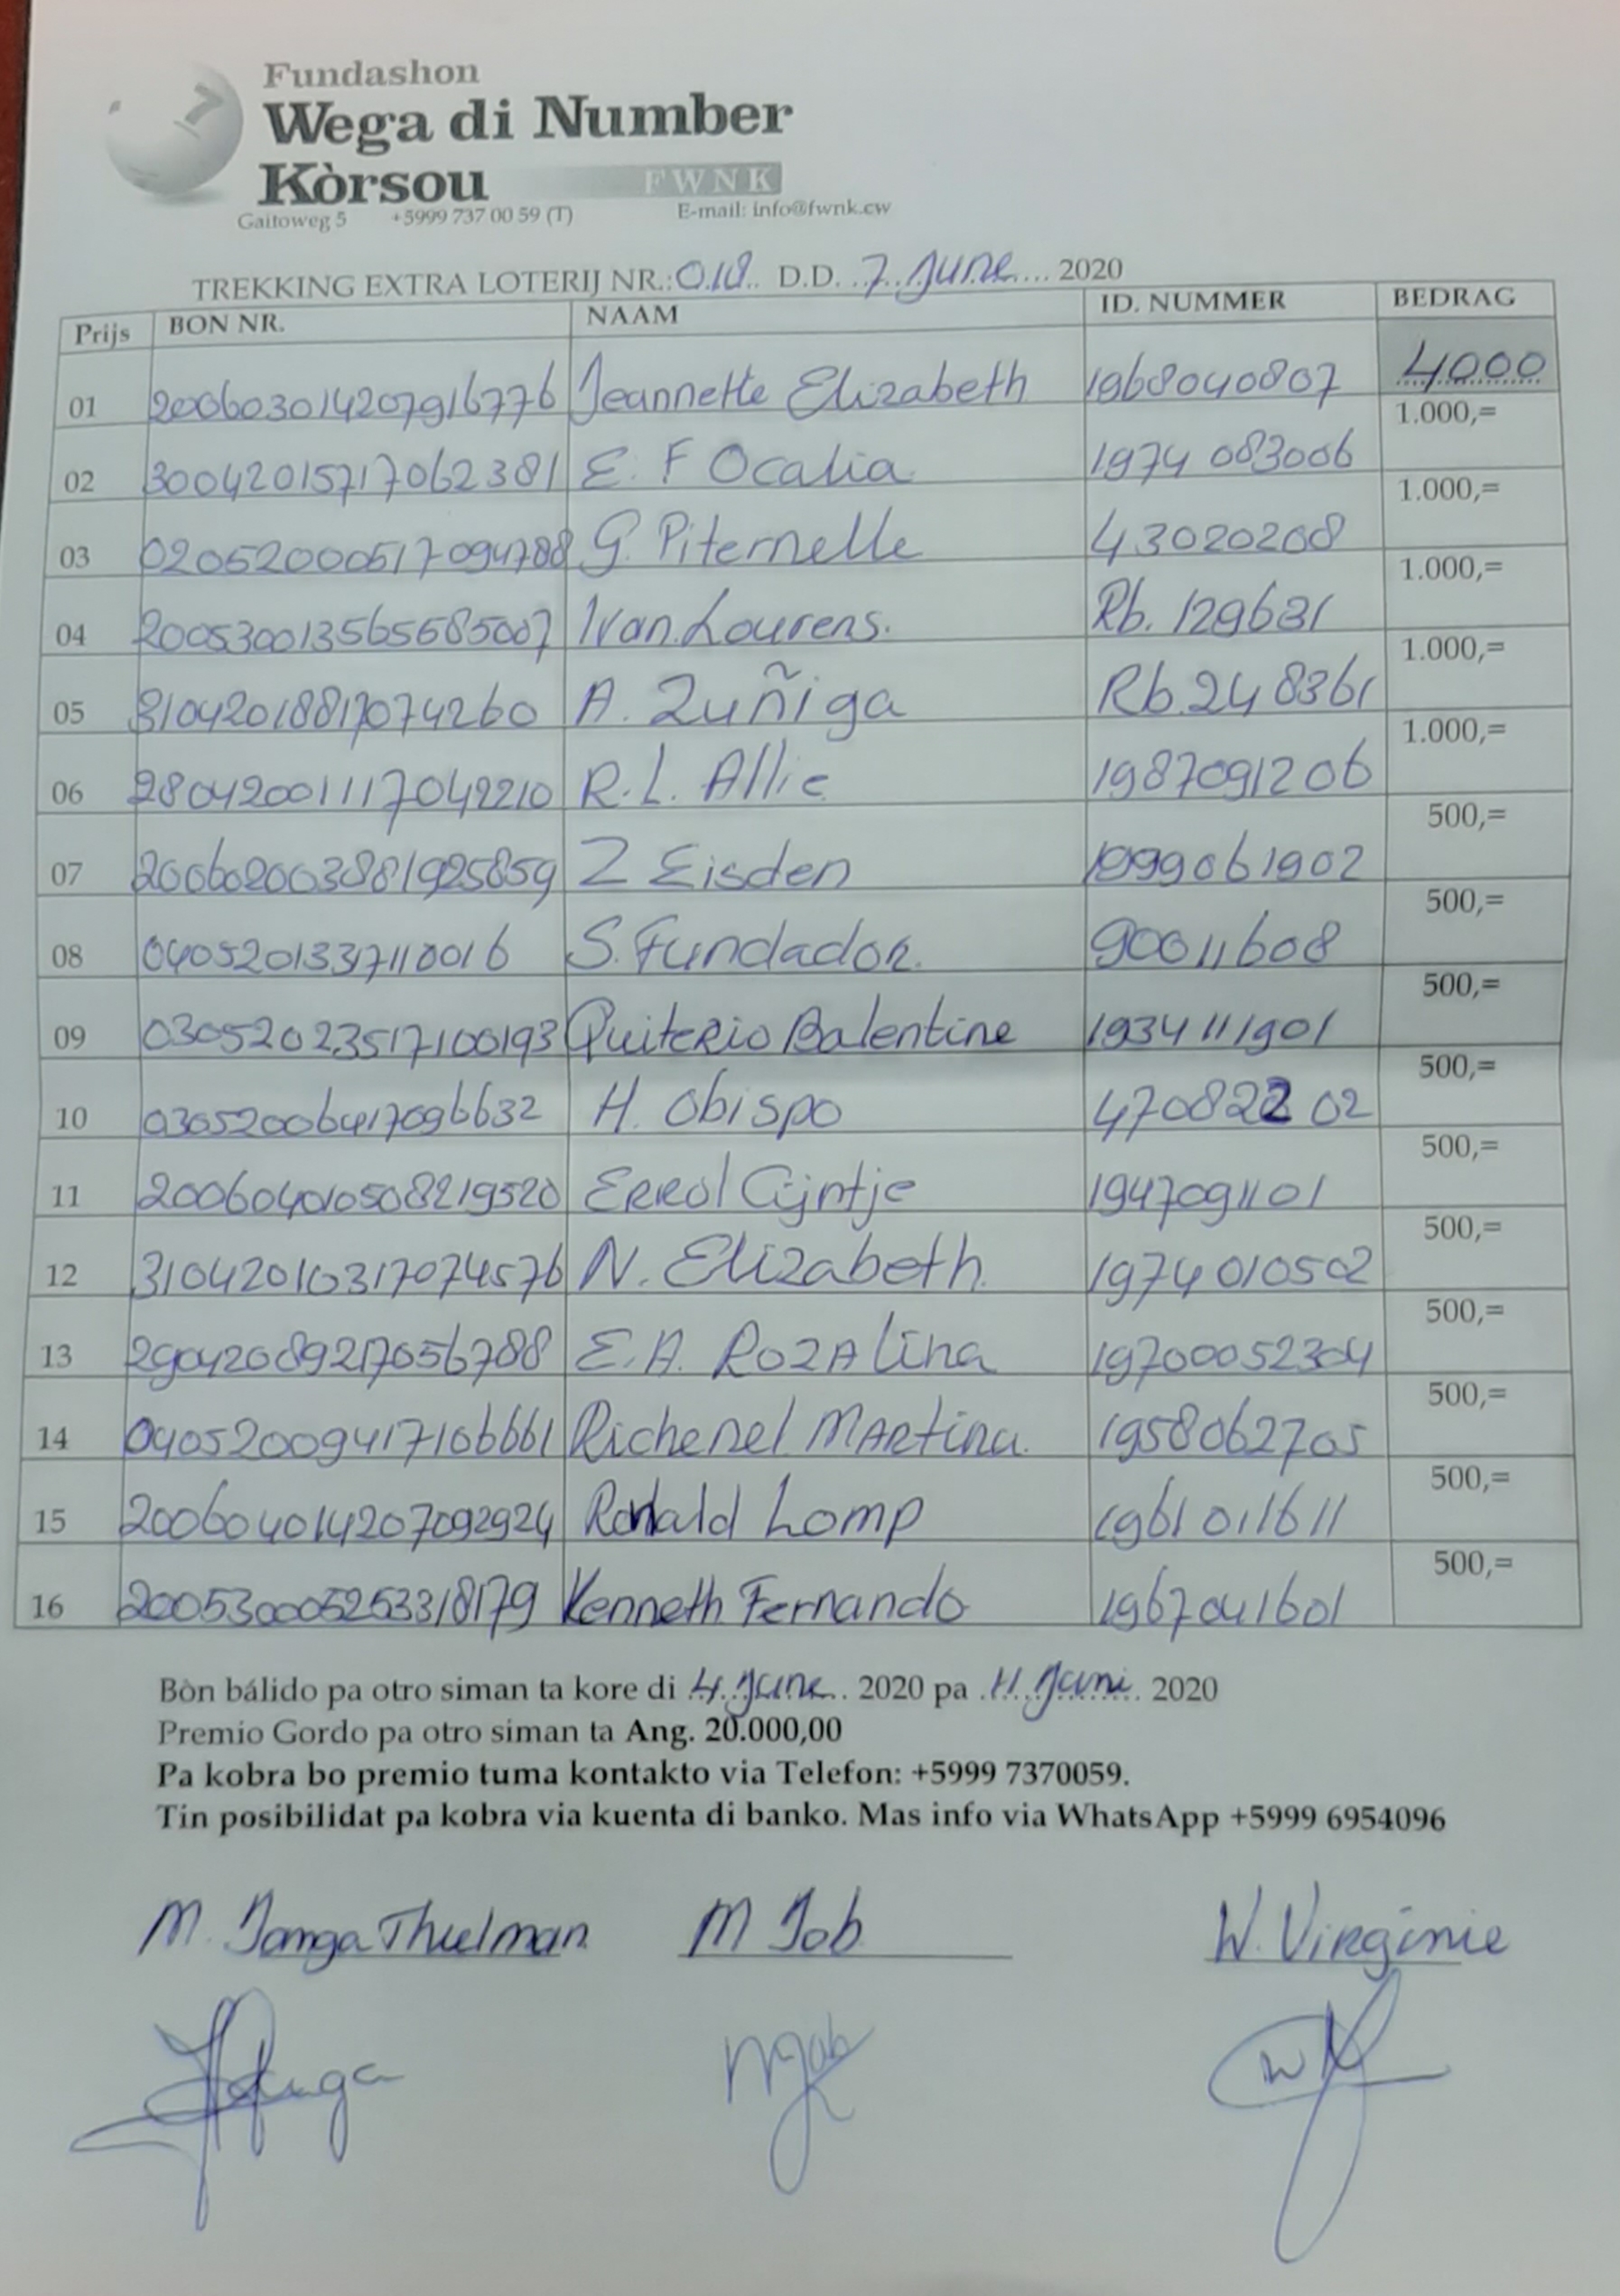 Fundashon
Wega di Number
Kòrsou
FWNK
Gaitoweg 5 +5999 737 00 59 (T) E-mail: info@fwnk.cw
TREKKING EXTRA LOTERIJ NR.: 018 D.D. 7 June 2020
Prijs BON NR. NAAM ID. NUMMER BEDRAG
01 200603014207916776 Jeannette Elizabeth 1968040807 4000
02 30042015717062381 E. F Ocalia 1974083006 1.000,=
03 02052000517094788 G. Piternelle 43020208 1.000,=
04 2005300135655685007 Ivan Lourens. Rb. 129631 1.000,=
05 31042018817074260 A. Zuñiga Rb. 248361 1.000,=
06 28042001117042210 R.L. Allie 1987091206 1.000,=
07 200602003881925859 Z Eisden 1999061902 500,=
08 0405201337110016 S. Fundador. 90011608 500,=
09 03052023517100193 Quiterio Balentine 1934111901 500,=
10 03052006417096632 H. Obispo 47082202 500,=
11 200604010508219520 Errol Cijntje 1947091101 500,=
12 31042010317074576 N. Elizabeth 1974010502 500,=
13 29042089217056788 E.A. Rozalina 19700052304 500,=
14 04052009417106661 Richenel Martina 1958062705 500,=
15 200604014207092924 Ronald Lomp 1961011611 500,=
16 200530005253318179 Kenneth Fernando 1967041601 500,=
Bòn bálido pa otro siman ta kore di 4 June 2020 pa 11 Juni 2020
Premio Gordo pa otro siman ta Ang. 20.000,00
Pa kobra bo premio tuma kontakto via Telefon: +5999 7370059.
Tin posibilidat pa kobra via kuenta di banko. Mas info via WhatsApp +5999 6954096
M. Janga Thielman M Job W. Virginie